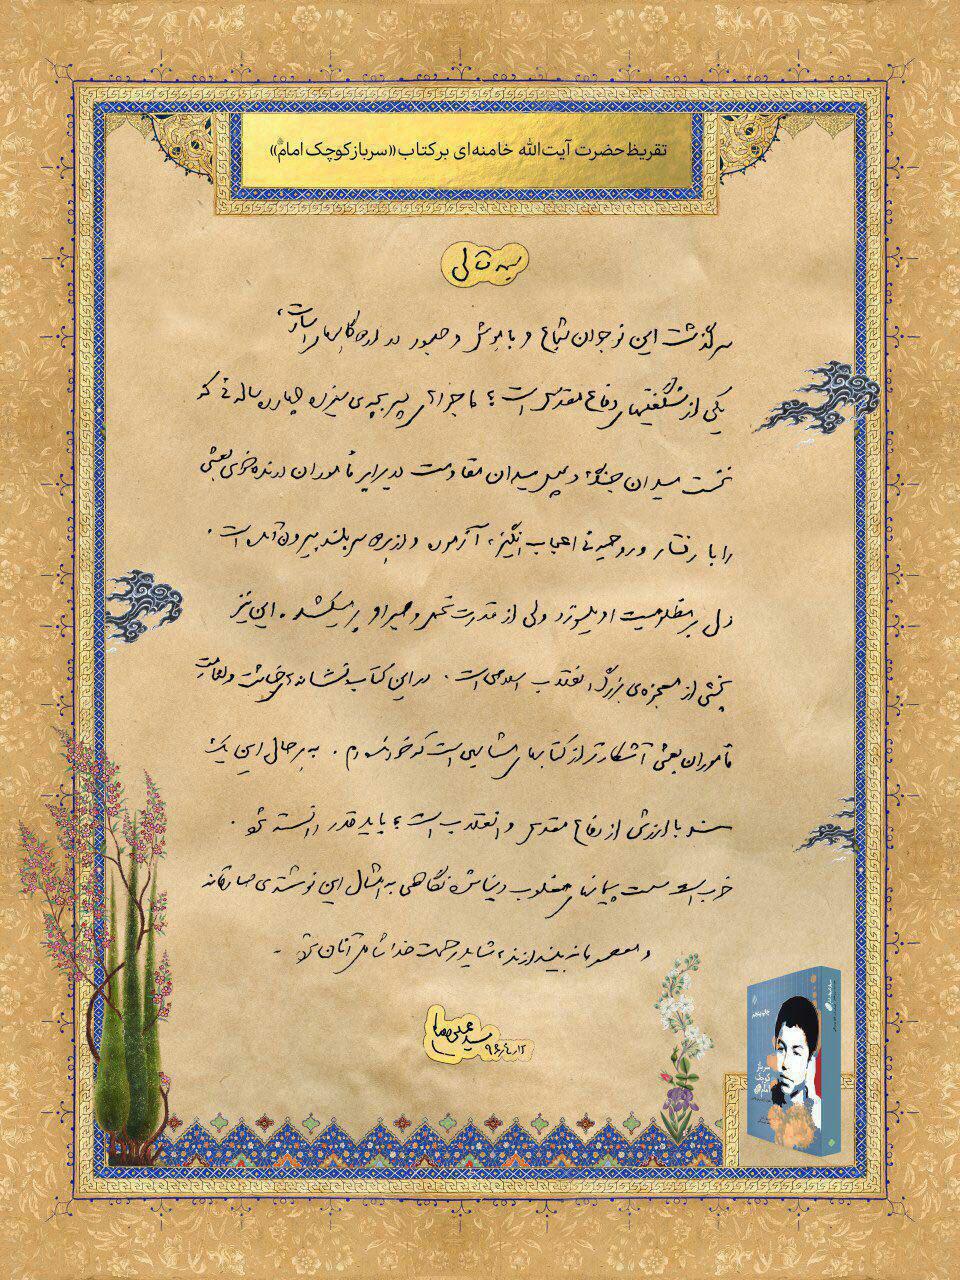 تقریظ حضرت آیت‌الله خامنه‌ای بر کتاب «سرباز کوچک امام»
بسمه تعالی
سرگذشت این نوجوان شجاع و باهوش و صبور در اردوگاههای اسارت،
یکی از شگفتیهای دفاع مقدس است؛ ماجراهای پسربچه‌ی سیزده چهارده ساله‌ئی که
نخست میدان جنگ و سپس میدان مقاومت در برابر مأموران درنده‌خوی بعثی
را با رفتار و روحیه‌ئی اعجاب‌انگیز، آزموده و از هر دو سربلند بیرون آمده است.
دل بر مظلومیت او میسوزد ولی از قدرت و تحمل و صبر او پر میکشد. این نیز
بخشی از معجزه‌ی بزرگ انقلاب اسلامی است. در این کتاب نشانه‌های خباثت و لئامت
مأموران بعثی آشکارتر از کتابهای مشابهی است که خوانده‌ام. به هر حال این یک
سند باارزش از دفاع مقدس و انقلاب است؛ باید قدر دانسته شود.
خوب است سست پیمانهای مغلوب دنیا شده نگاهی به امثال این نوشته‌ی صادقانه
و معصومانه بیندازند، شاید رحمت خدا شامل آنان شود.
سید علی خامنه‌ای
۹۶/۴/۱۲
سرباز
کوچک
امام